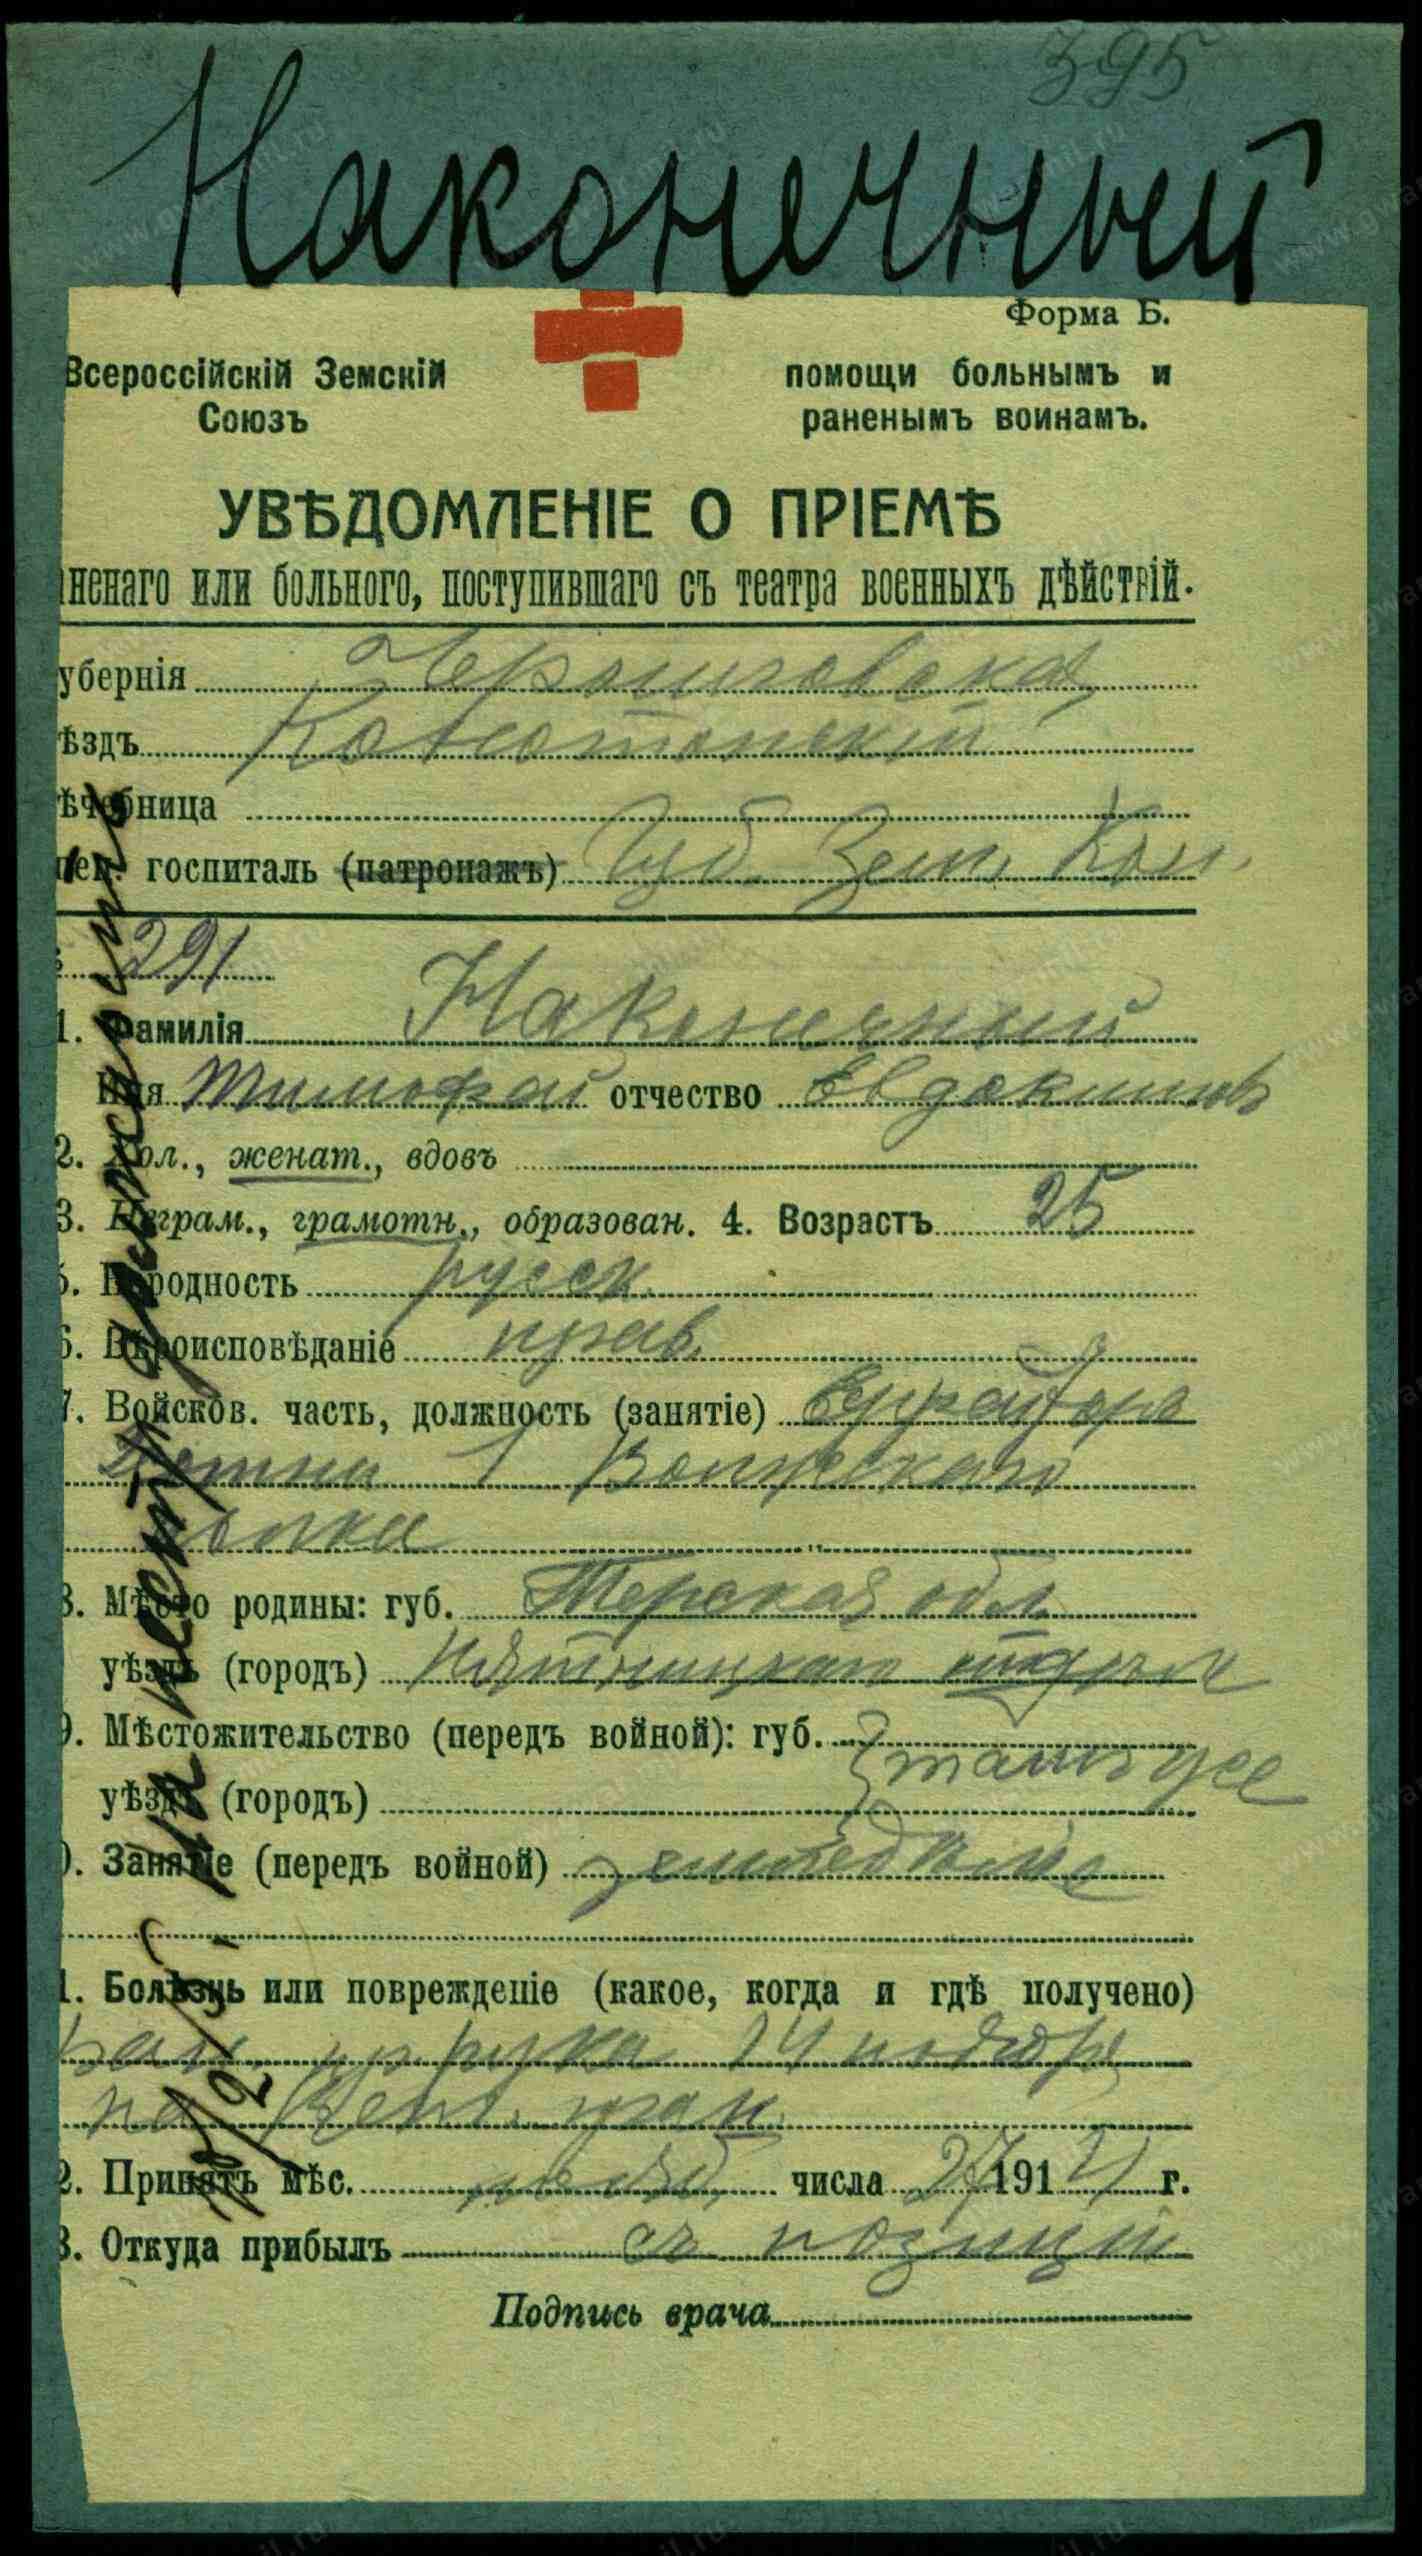 395
Наконечный
Форма Б.
Всероссійскій Земскій
Союзъ
помощи больнымъ и
раненымъ воинамъ.
УВѢДОМЛЕНІЕ О ПРІЕМѢ
аненаго или больного, поступившаго съ театра военныхъ дѣйствій.
уберніи Черниговская
ѣздъ Конотопскій
ѣчебница
пец. госпиталь (патронажъ) Губ. Зем. Ком.
291
1. Фамилія Наконечный
Имя Тимофей отчество Евдокимов
2. Хол., женат., вдовъ
3. Неграм., грамотн., образован. 4. Возрастъ 25
5. Народность русск.
6. Вѣроисповѣданіе прав.
7. Войсков. часть, должность (занятіе)
1 Волжскаго
полка
8. Мѣсто родины: губ. Терская обл
уѣздъ (городъ) отдѣла
9. Мѣстожительство (передъ войной): губ. тамъ же
уѣздъ (городъ)
0. Занятіе (передъ войной) земледѣліе
1. Болѣзнь или поврежденіе (какое, когда и гдѣ получено)
рука 24 ноября
на Венг. гран
2. Принятъ мѣс. нояб. числа 27 1914 г.
3. Откуда прибылъ съ позиціи
Подпись врача